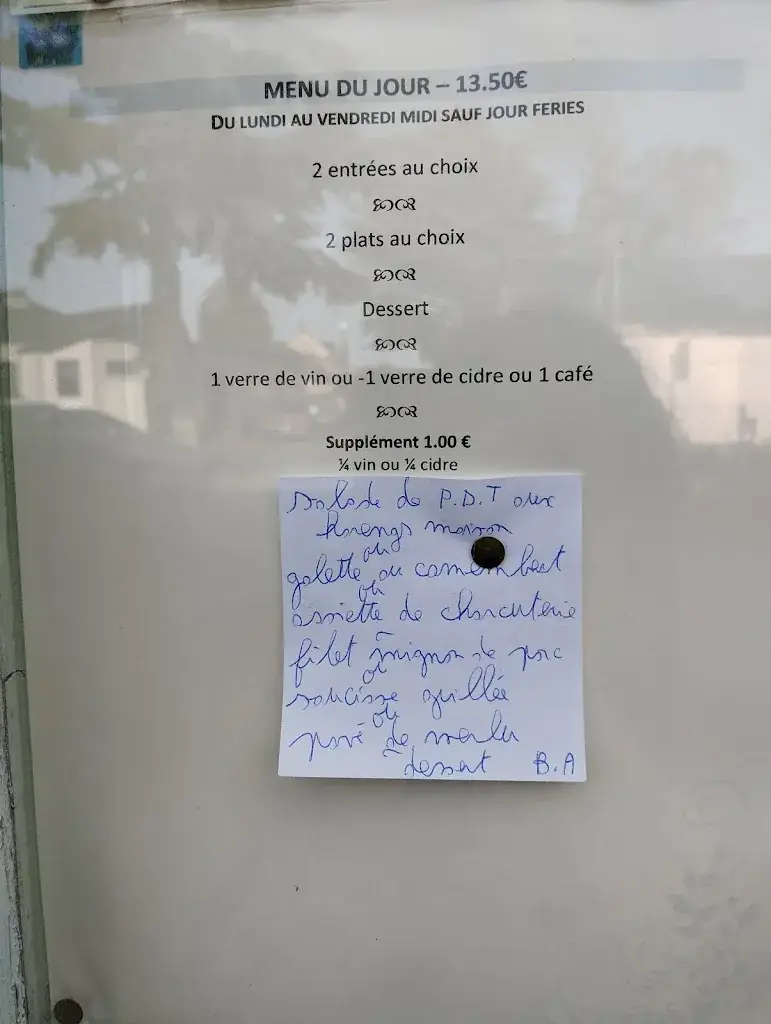 MENU DU JOUR – 13.50€
DU LUNDI AU VENDREDI MIDI SAUF JOUR FERIES
2 entrées au choix
2 plats au choix
Dessert
1 verre de vin ou -1 verre de cidre ou 1 café
Supplément 1.00 €
¼ vin ou ¼ cidre
salade de P.D.T aux
harengs maison
ou
galette au camembert
ou
assiette de charcuterie
filet mignon de porc
ou
saucisse grillée
ou
pavé de merlu
dessert B.A